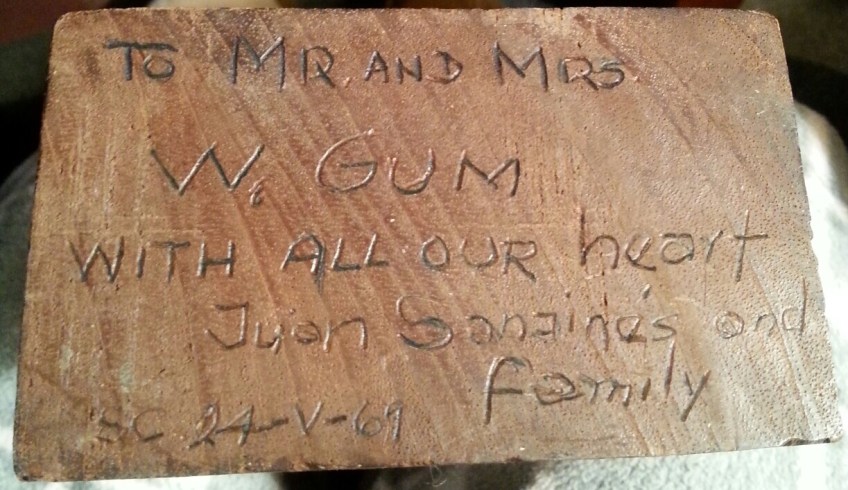 TO MR. AND MRS.
W. GUM
WITH ALL OUR heart
Juan Sanjinés and
family
SC 24-V-69